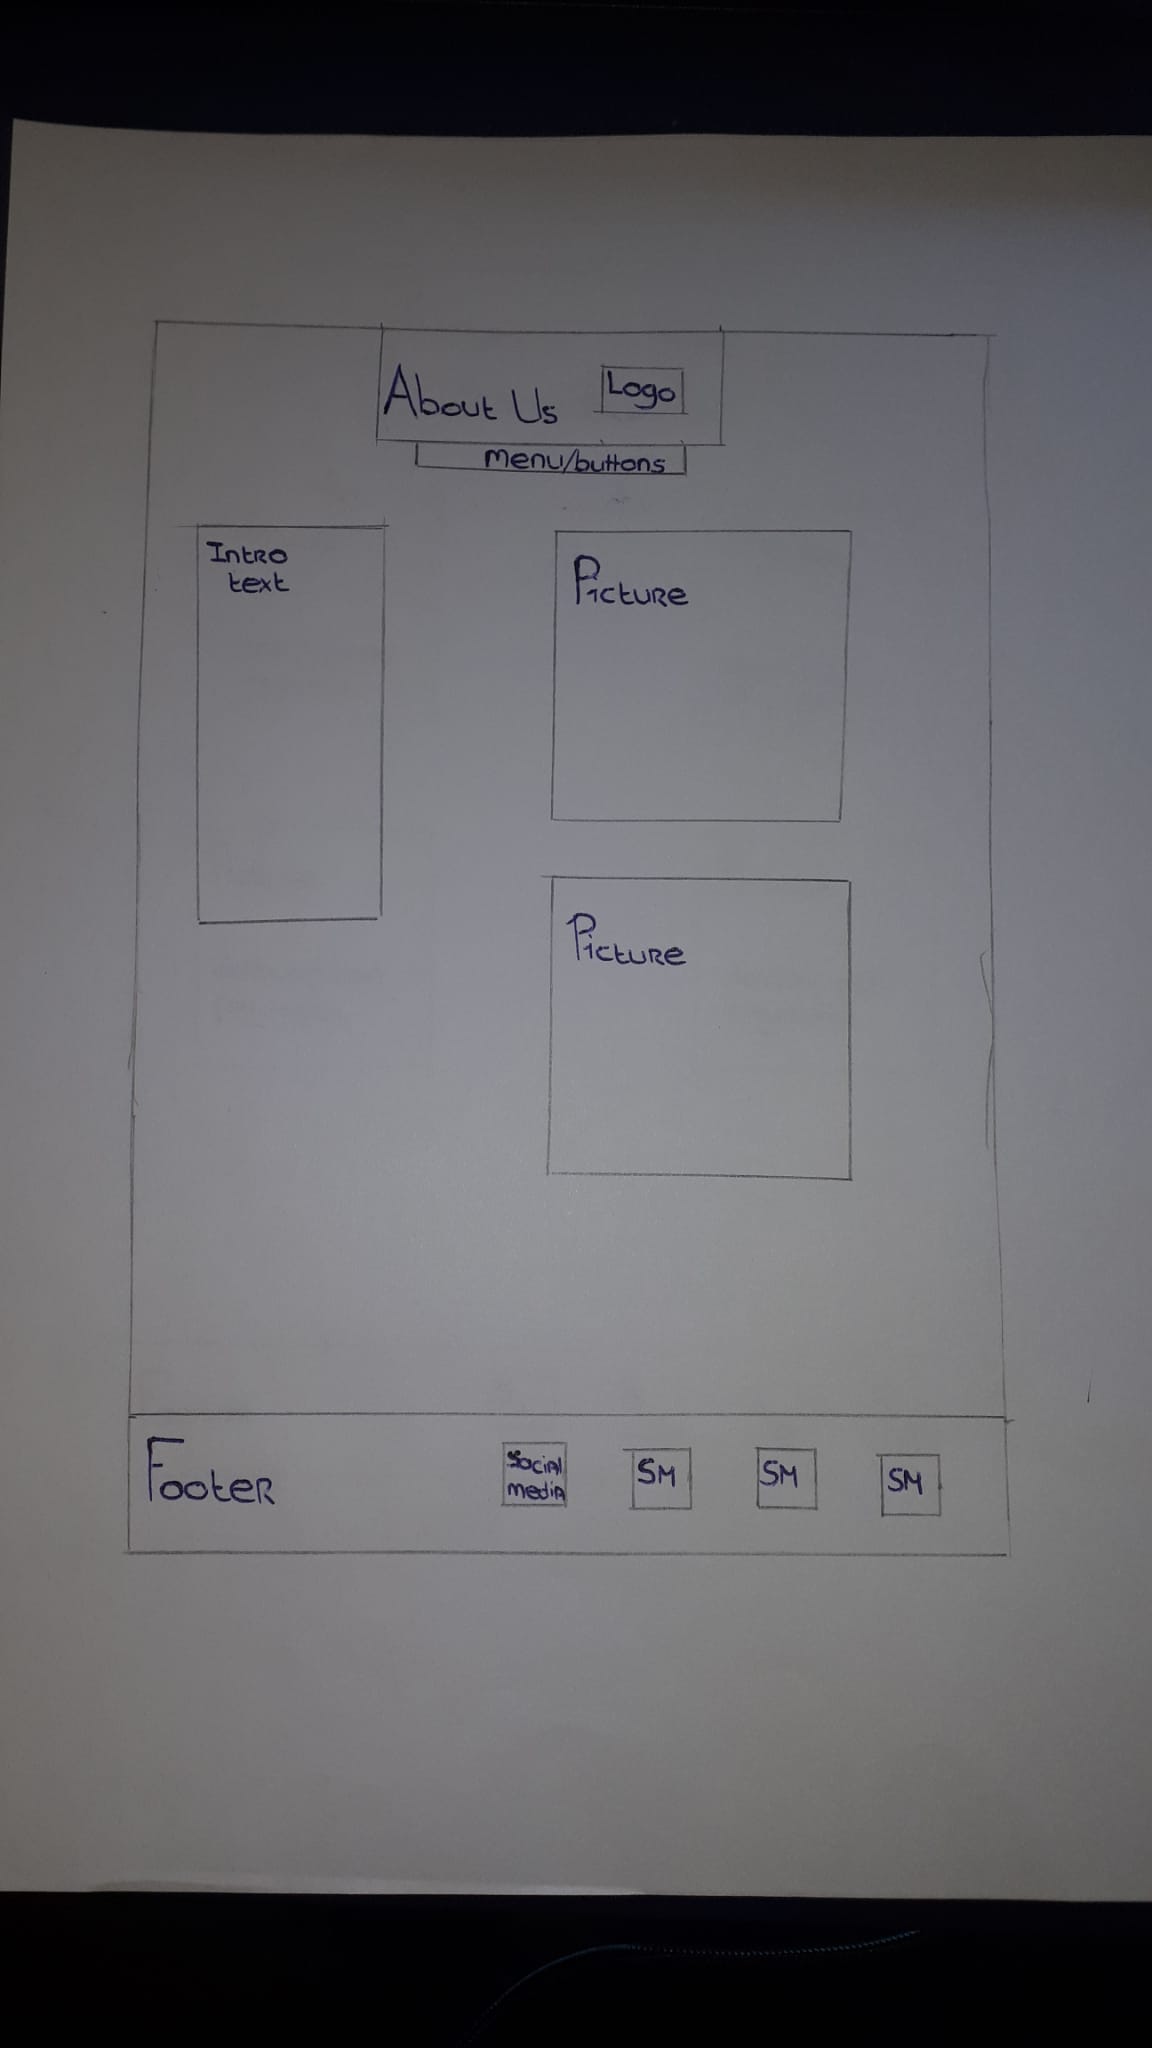 About Us
Logo
menu/buttons
Intro
text
Picture
Picture
Footer
Social
media
SM
SM
SM